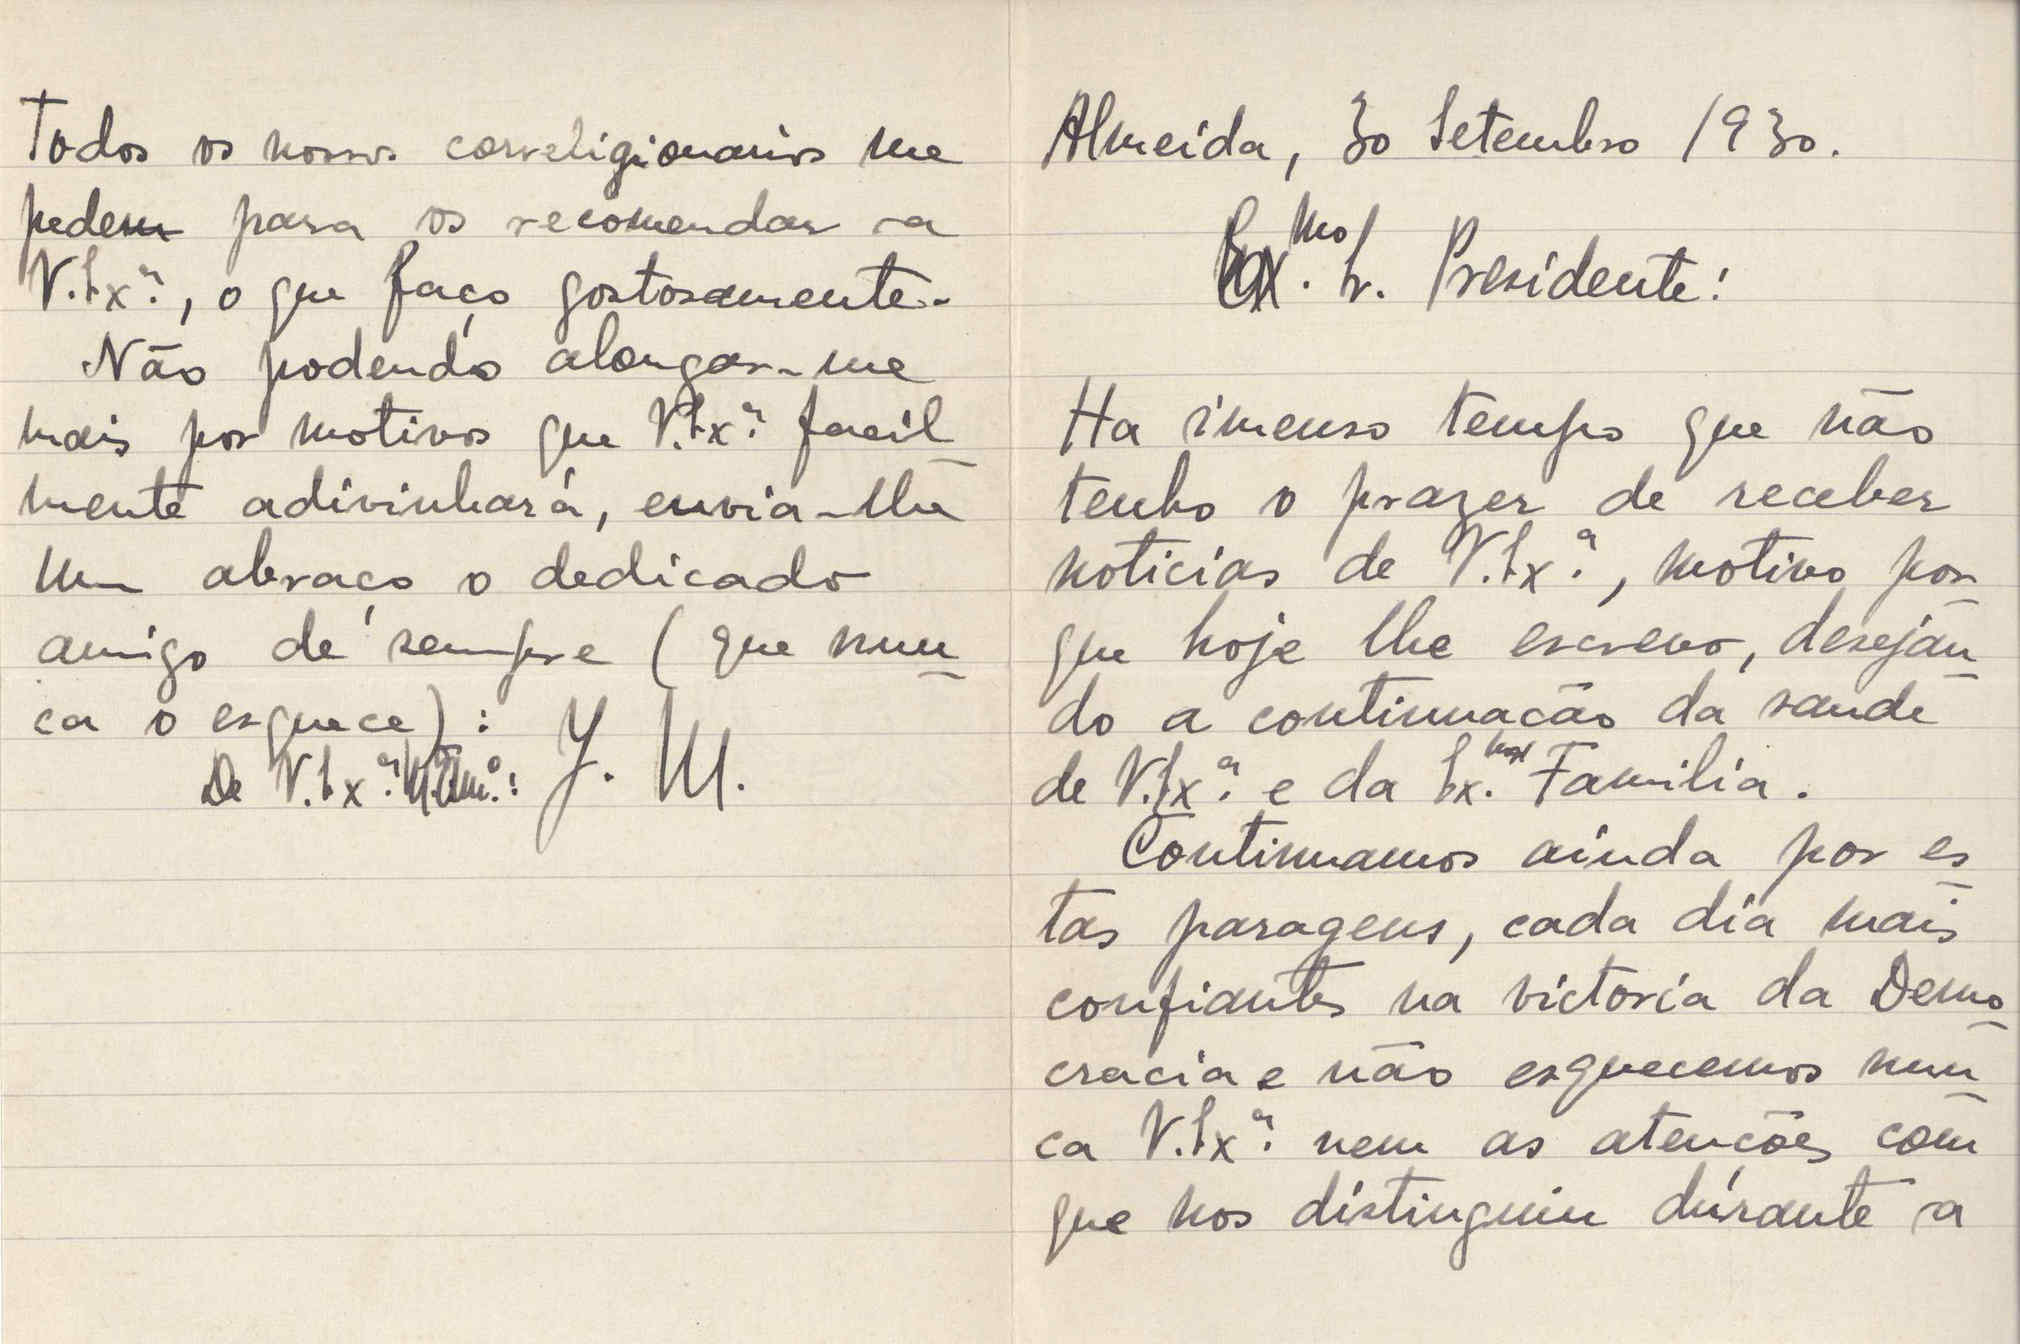 Almeida, 30 Setembro 1930.
Ex.mo Sr. Presidente:
Ha imenso tempo que não
tenho o prazer de receber
noticias de V. Ex.ª, motivo por-
que hoje lhe escrevo, desejan-
do a continuação da saude
de V. Ex.ª e da Ex.ma Familia.
Continuamos ainda por es-
tas paragens, cada dia mais
confiantes na victoria da Demo-
cracia e não esquecemos nun-
ca V. Ex.ª nem as atenções com
que nos distinguiu durante a
Todos os nossos correligionarios me
pedem para os recomendar a
V. Ex.ª, o que faço gostosamente.
Não podendo alongar-me
mais por motivos que V. Ex.ª facil-
mente adivinhará, envia-lhe
um abraço o dedicado
amigo de sempre (que nun-
ca o esquece):
De V. Ex.ª J. M.